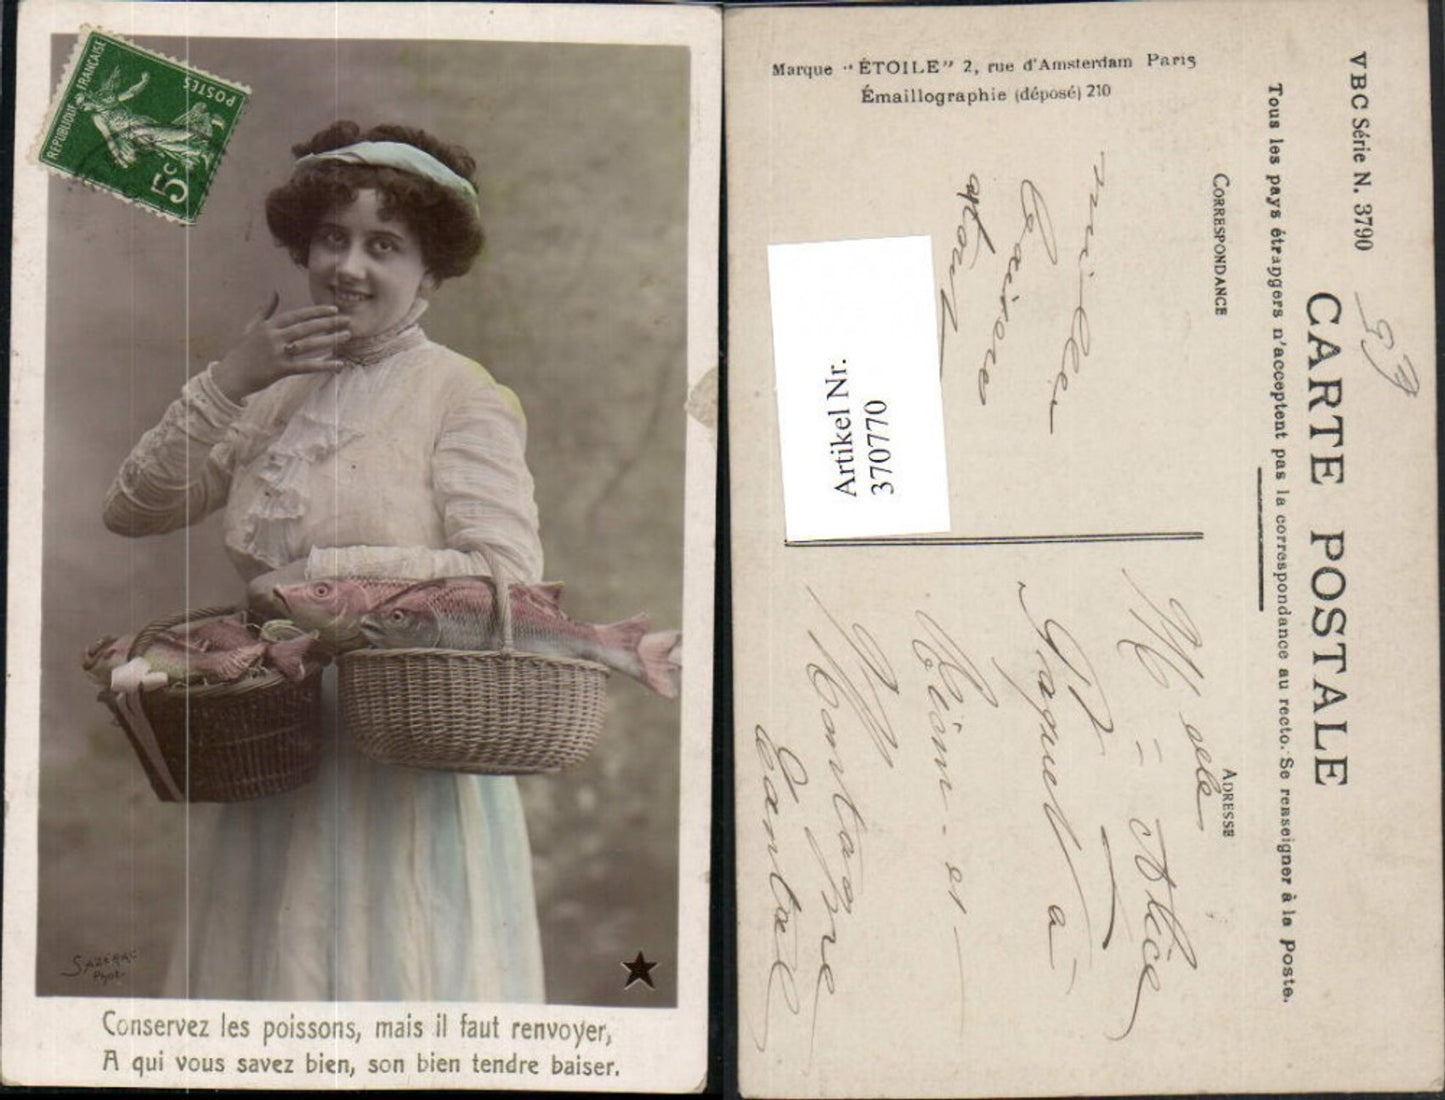 RÉPUBLIQUE FRANÇAISE
POSTES
5c
SAZERAC
Phot.
Conservez les poissons, mais il faut renvoyer,
A qui vous savez bien, son bien tendre baiser.
Marque "ÉTOILE" 2, rue d'Amsterdam Paris
Émaillographie (déposé) 210
VBC Série N. 3790
CARTE POSTALE
Tous les pays étrangers n'acceptent pas la correspondance au recto. Se renseigner à la Poste.
CORRESPONDANCE
ADRESSE
mille
baisers
Artikel Nr.
370770
Melle
Alice
à
Montagne
Cantal